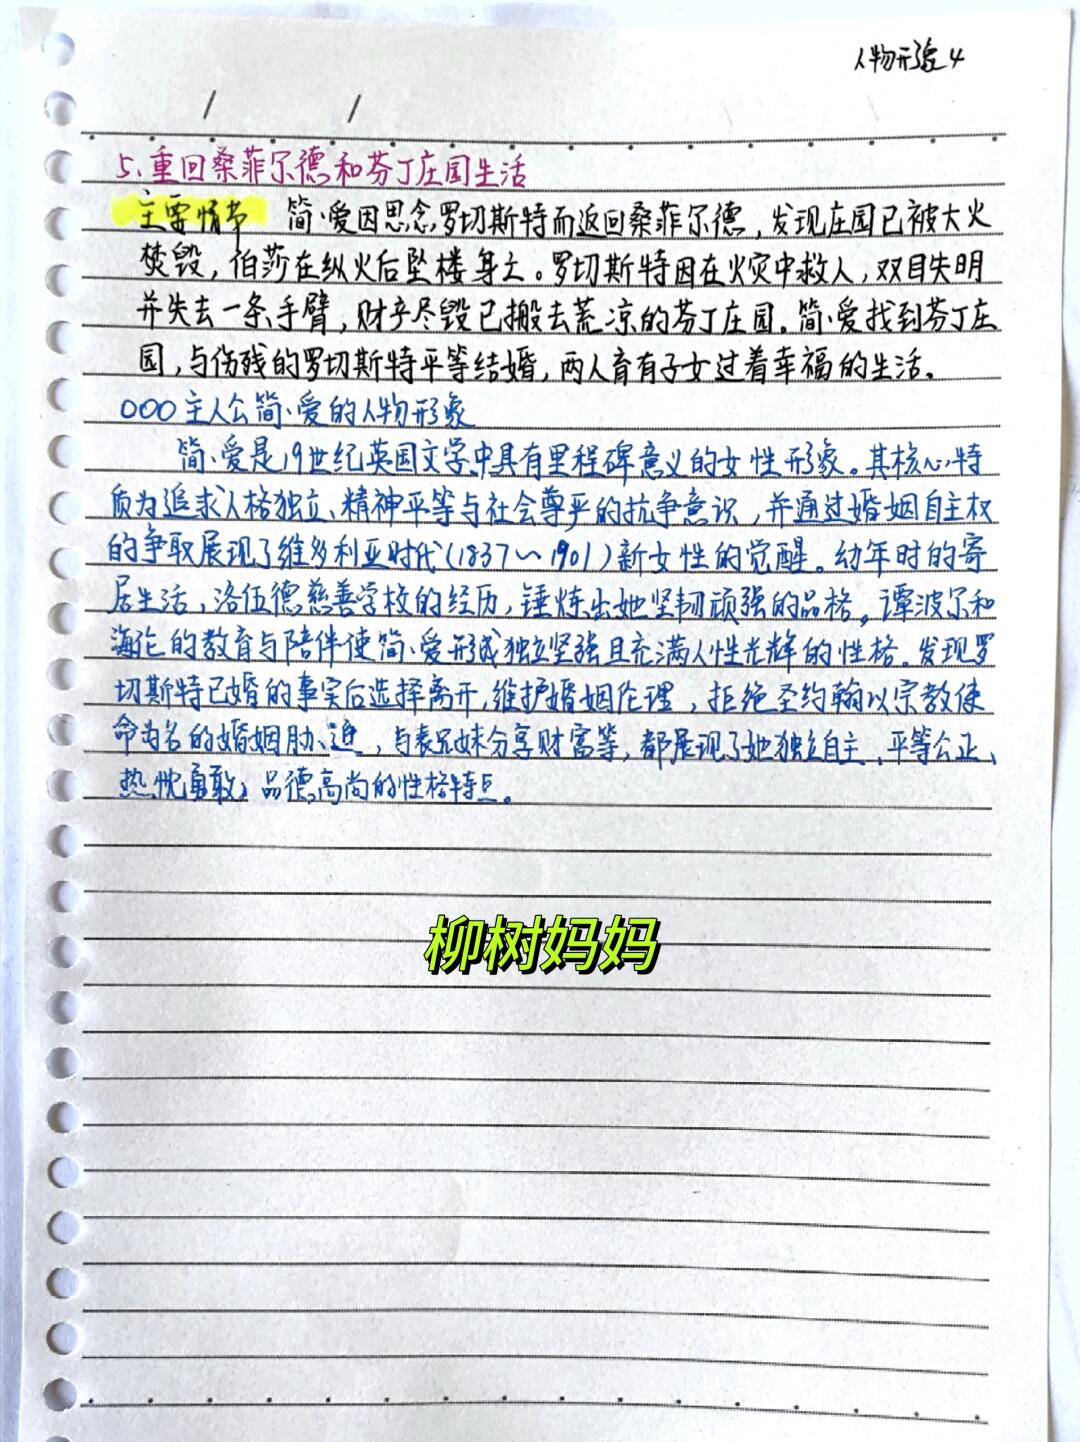 人物形象4
5、重回桑菲尔德和芬丁庄园生活
主要情节 简·爱因思念罗切斯特而返回桑菲尔德，发现庄园已被大火
焚毁，伯莎在纵火后坠楼身亡。罗切斯特因在火灾中救人，双目失明
并失去一条手臂，财产尽毁已搬去荒凉的芬丁庄园。简·爱找到芬丁庄
园，与伤残的罗切斯特平等结婚，两人育有子女过着幸福的生活。
○○○主人公简·爱的人物形象
简·爱是19世纪英国文学中具有里程碑意义的女性形象。其核心特
质为追求人格独立、精神平等与社会尊严的抗争意识，并通过婚姻自主权
的争取展现了维多利亚时代（1837～1901）新女性的觉醒。幼年时的寄
居生活，洛伍德慈善学校的经历，锤炼出她坚韧顽强的品格。谭波尔和
海伦的教育与陪伴使简·爱形成独立坚强且充满人性光辉的性格。发现罗
切斯特已婚的事实后选择离开，维护婚姻伦理，拒绝圣约翰以宗教使
命为名的婚姻胁迫，与表兄妹分享财富等，都展现了她独立自主、平等公正、
热忱勇敢，品德高尚的性格特点。
柳树妈妈